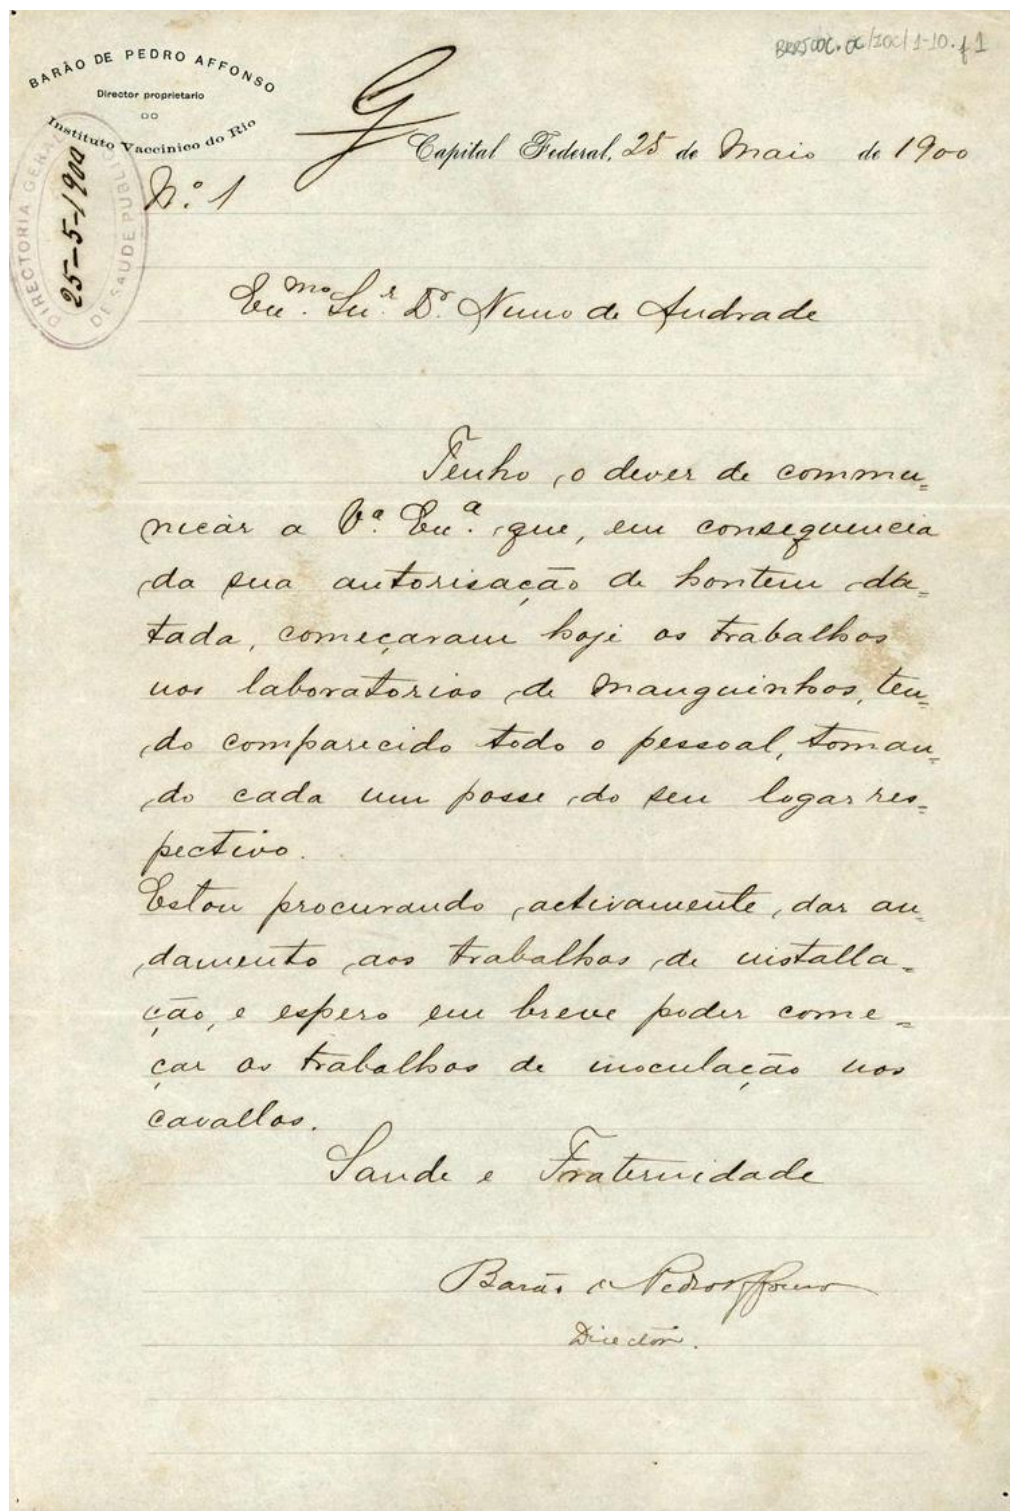 BRRJCOC.OC/IOC/1-10.f1
BARÃO DE PEDRO AFFONSO
Director proprietario
DO
Instituto Vaccinico do Rio
Capital Federal, 25 de Maio de 1900
DIRECTORIA GERAL DE SAUDE PUBLICA
25-5-1900
N.º 1
Exmo. Snr. Dr. Nuno de Andrade
Tenho o dever de commu=
nicar a Vª. Exª. que, em consequencia
da sua autorisação de hontem da=
tada, começaram hoje os trabalhos
nos laboratorios de Manguinhos, ten=
do comparecido todo o pessoal, toman=
do cada um posse do seu logar res=
pectivo.
Estou procurando activamente dar an=
damento aos trabalhos de installa=
ção, e espero em breve poder come=
çar os trabalhos de inoculação nos
cavallos.
Saude e Fraternidade
Barão de Pedro Affonso
Director.